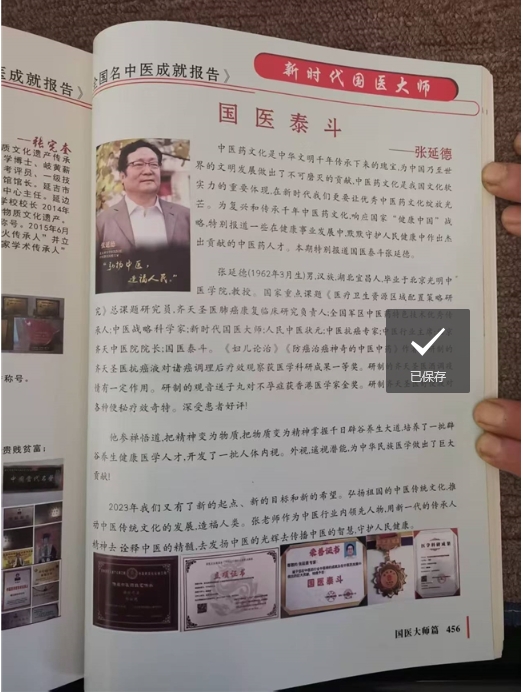 医成就报告》
—张完奎
质文化遗产传承
学博士，岐黄新
考评员、一级技
馆馆长、延吉市
中心主任、延边
学校校长 2014年
物质文化遗产，
称号。2015年6月
火传承人”并立
家学术传承人”
称号.
贵贱贫富：
全国名中医成就报告》
新时代国医大师
国医泰斗
——张延德
中医药文化是中华文明千年传承下来的瑰宝，为中国乃至世
界的文明发展做出了不可磨灭的贡献，中医药文化是我国文化软
实力的重要体现，在新时代我们更要让优秀中医药文化绽放光
芒。为复兴和传承千年中医药文化，响应国家“健康中国”战
略，特别报道一些在健康事业发展中，默默守护人民健康中作出杰
出贡献的中医药人才。本期特别报道国医泰斗张延德。
“弘扬中医，
造福人民。”
张延德(1962年3月生)男，汉族，湖北宜昌人，毕业于北京光明中
医学院，教授。国家重点课题《医疗卫生资源区域配置策略研
究》总课题研究员，齐天圣医肺癌康复临床研究负责人；全国军区中医
承人；中医战略科学家；新时代国医大师；人民中医状元；中医抗癌专家；
齐天中医院院长；国医泰斗。《妇儿论治》《防癌治癌神奇的中医中
齐天圣医抗癌液对诸癌调理后疗效观察获医学科研成果一等奖。研
情有一定作用。研制的观音送子丸对不孕症获香港医学家金奖。研制
各种侵秘疗效奇特。深受患者好评！
他参禅悟道，把精神变为物质，把物质变为精神掌握千日辟谷养生大道，培养了一批辟
谷养生健康医学人才，开发了一批人体内视。外视，遥视潜能，为中华民族医学做出了巨大
贡献！
2023年我们又有了新的起点、新的目标和新的希望。弘扬祖国的中医传统文化，推
动中医传统文化的发展，造福人类。张老师作为中医行业内领先人物，用新一代的传承人
精神去诠释中医的精髓，去发扬中医的光辉去传播中医的智慧，守护人民健康。
荣誉证书
国医泰斗
国医大师篇 456
已保存